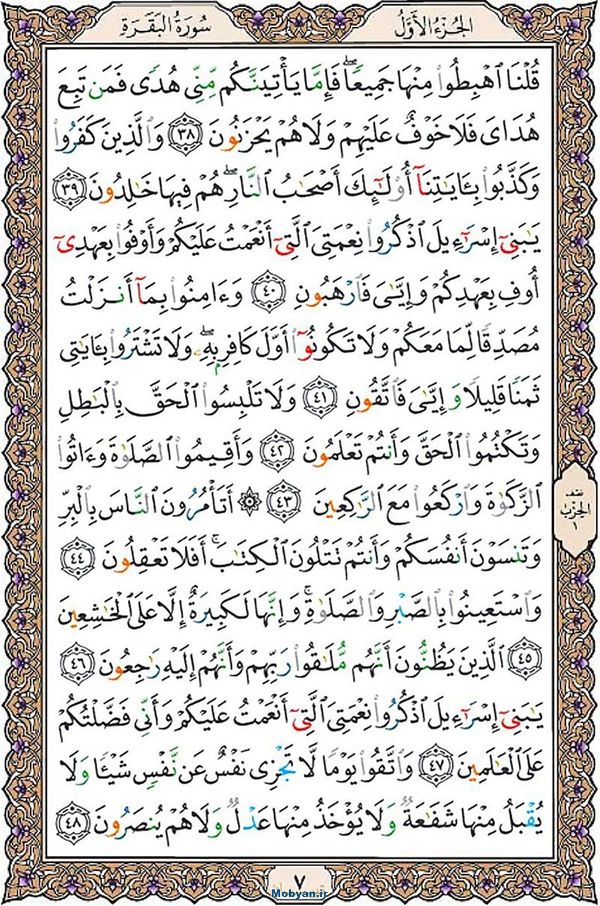 الجُزءُ الأَوَّلُ
سُورَةُ البَقَرَةِ
قُلۡنَا ٱهۡبِطُواْ مِنۡهَا جَمِيعٗاۖ فَإِمَّا يَأۡتِيَنَّكُم مِّنِّي هُدٗى فَمَن تَبِعَ
هُدَايَ فَلَا خَوۡفٌ عَلَيۡهِمۡ وَلَا هُمۡ يَحۡزَنُونَ ٣٨ وَٱلَّذِينَ كَفَرُواْ
وَكَذَّبُواْ بِـَٔايَٰتِنَآ أُوْلَٰٓئِكَ أَصۡحَٰبُ ٱلنَّارِۖ هُمۡ فِيهَا خَٰلِدُونَ ٣٩
يَٰبَنِيٓ إِسۡرَٰٓءِيلَ ٱذۡكُرُواْ نِعۡمَتِيَ ٱلَّتِيٓ أَنۡعَمۡتُ عَلَيۡكُمۡ وَأَوۡفُواْ بِعَهۡدِيٓ
أُوفِ بِعَهۡدِكُمۡ وَإِيَّٰيَ فَٱرۡهَبُونِ ٤٠ وَءَامِنُواْ بِمَآ أَنزَلۡتُ
مُصَدِّقٗا لِّمَا مَعَكُمۡ وَلَا تَكُونُوٓاْ أَوَّلَ كَافِرِۭ بِهِۦۖ وَلَا تَشۡتَرُواْ بِـَٔايَٰتِي
ثَمَنٗا قَلِيلٗا وَإِيَّٰيَ فَٱتَّقُونِ ٤١ وَلَا تَلۡبِسُواْ ٱلۡحَقَّ بِٱلۡبَٰطِلِ
وَتَكۡتُمُواْ ٱلۡحَقَّ وَأَنتُمۡ تَعۡلَمُونَ ٤٢ وَأَقِيمُواْ ٱلصَّلَوٰةَ وَءَاتُواْ
ٱلزَّكَوٰةَ وَٱرۡكَعُواْ مَعَ ٱلرَّٰكِعِينَ ٤٣ ۞ أَتَأۡمُرُونَ ٱلنَّاسَ بِٱلۡبِرِّ
نصف
الحِزْب
١
وَتَنسَوۡنَ أَنفُسَكُمۡ وَأَنتُمۡ تَتۡلُونَ ٱلۡكِتَٰبَۚ أَفَلَا تَعۡقِلُونَ ٤٤
وَٱسۡتَعِينُواْ بِٱلصَّبۡرِ وَٱلصَّلَوٰةِۚ وَإِنَّهَا لَكَبِيرَةٌ إِلَّا عَلَى ٱلۡخَٰشِعِينَ
٤٥ ٱلَّذِينَ يَظُنُّونَ أَنَّهُم مُّلَٰقُواْ رَبِّهِمۡ وَأَنَّهُمۡ إِلَيۡهِ رَٰجِعُونَ ٤٦
يَٰبَنِيٓ إِسۡرَٰٓءِيلَ ٱذۡكُرُواْ نِعۡمَتِيَ ٱلَّتِيٓ أَنۡعَمۡتُ عَلَيۡكُمۡ وَأَنِّي فَضَّلۡتُكُمۡ
عَلَى ٱلۡعَٰلَمِينَ ٤٧ وَٱتَّقُواْ يَوۡمٗا لَّا تَجۡزِي نَفۡسٌ عَن نَّفۡسٖ شَيۡـٔٗا وَلَا
يُقۡبَلُ مِنۡهَا شَفَٰعَةٞ وَلَا يُؤۡخَذُ مِنۡهَا عَدۡلٞ وَلَا هُمۡ يُنصَرُونَ ٤٨
٧
Mobyan.ir